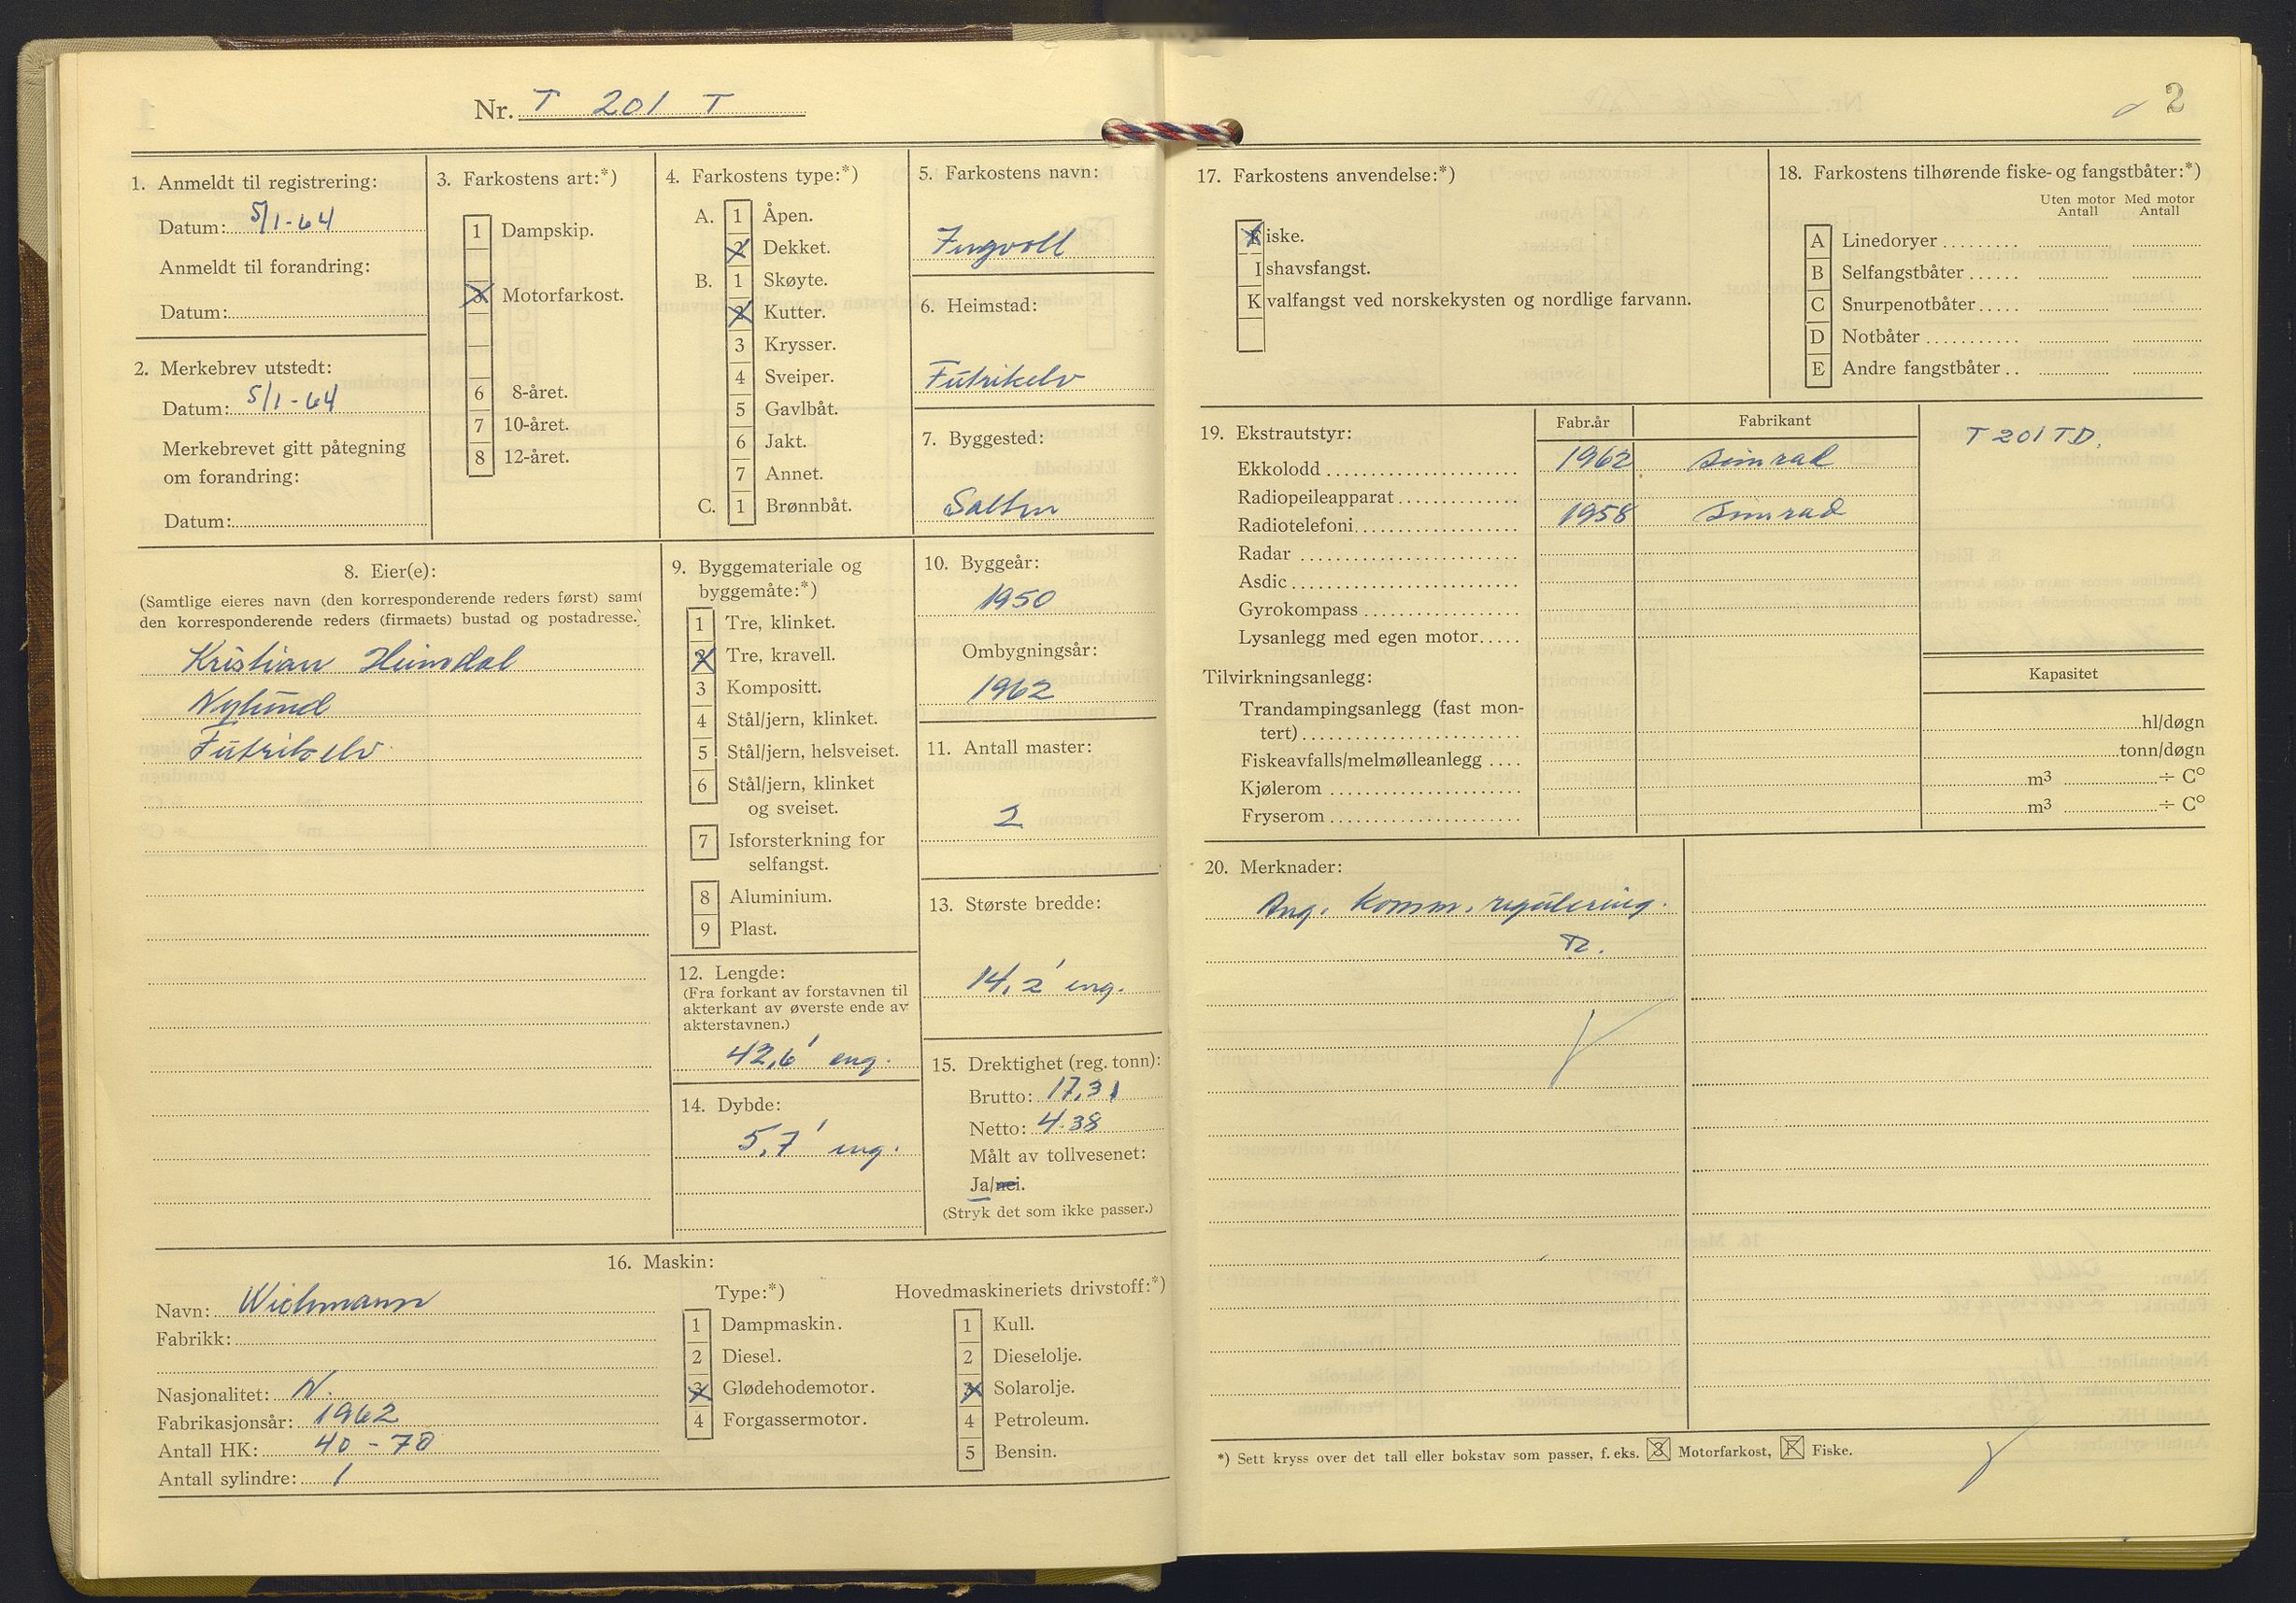 Nr. T 201 T
1. Anmeldt til registrering:
Datum: 5/1-64
Anmeldt til forandring:
Datum:
2. Merkebrev utstedt:
Datum: 5/1-64
Merkebrevet gitt påtegning
om forandring:
Datum:
3. Farkostens art:*)
1 Dampskip.
3 Motorfarkost.
6 8-året.
7 10-året.
8 12-året.
4. Farkostens type:*)
A. 1 Åpen.
2 Dekket.
B. 1 Skøyte.
2 Kutter.
3 Krysser.
4 Sveiper.
5 Gavlbåt.
6 Jakt.
7 Annet.
C. 1 Brønnbåt.
5. Farkostens navn:
Ingvoll
6. Heimstad:
Futrikelv
7. Byggested:
Salten
8. Eier(e):
(Samtlige eieres navn (den korresponderende reders først) samt
den korresponderende reders (firmaets) bustad og postadresse.)
Kristian Heimdal
Nylund
Futrikelv
9. Byggemateriale og
byggemåte:*)
1 Tre, klinket.
2 Tre, kravell.
3 Kompositt.
4 Stål/jern, klinket.
5 Stål/jern, helsveiset.
6 Stål/jern, klinket
og sveiset.
7 Isforsterkning for
selfangst.
8 Aluminium.
9 Plast.
10. Byggeår:
1950
Ombygningsår:
1962
11. Antall master:
2
12. Lengde:
(Fra forkant av forstavnen til
akterkant av øverste ende av
akterstavnen.)
42,6' eng.
13. Største bredde:
14,2' eng.
14. Dybde:
5,7' eng.
15. Drektighet (reg. tonn):
Brutto: 17,31
Netto: 4.38
Målt av tollvesenet:
Ja/nei.
(Stryk det som ikke passer.)
16. Maskin:
Navn: Wichmann
Fabrikk:
Nasjonalitet: N.
Fabrikasjonsår: 1962
Antall HK: 40 - 70
Antall sylindre: 1
Type:*)
1 Dampmaskin.
2 Diesel.
3 Glødehodemotor.
4 Forgassermotor.
Hovedmaskineriets drivstoff:*)
1 Kull.
2 Dieselolje.
3 Solarolje.
4 Petroleum.
5 Bensin.
2
17. Farkostens anvendelse:*)
Fiske.
Ishavsfangst.
Kvalfangst ved norskekysten og nordlige farvann.
18. Farkostens tilhørende fiske- og fangstbåter:*)
Uten motor Med motor
Antall Antall
A Linedoryer
B Selfangstbåter
C Snurpenotbåter
D Notbåter
E Andre fangstbåter
19. Ekstrautstyr:
Fabr.år Fabrikant
Ekkolodd 1962 Simrad
Radiopeileapparat
Radiotelefoni 1958 Simrad
Radar
Asdic
Gyrokompass
Lysanlegg med egen motor
T 201 TD.
Tilvirkningsanlegg:
Kapasitet
Trandampingsanlegg (fast mon-
tert) hl/døgn
Fiskeavfalls/melmølleanlegg tonn/døgn
Kjølerom m3 ÷ C°
Fryserom m3 ÷ C°
20. Merknader:
Ang. komm. regulering.
*) Sett kryss over det tall eller bokstav som passer, f. eks. 3 Motorfarkost, F Fiske.